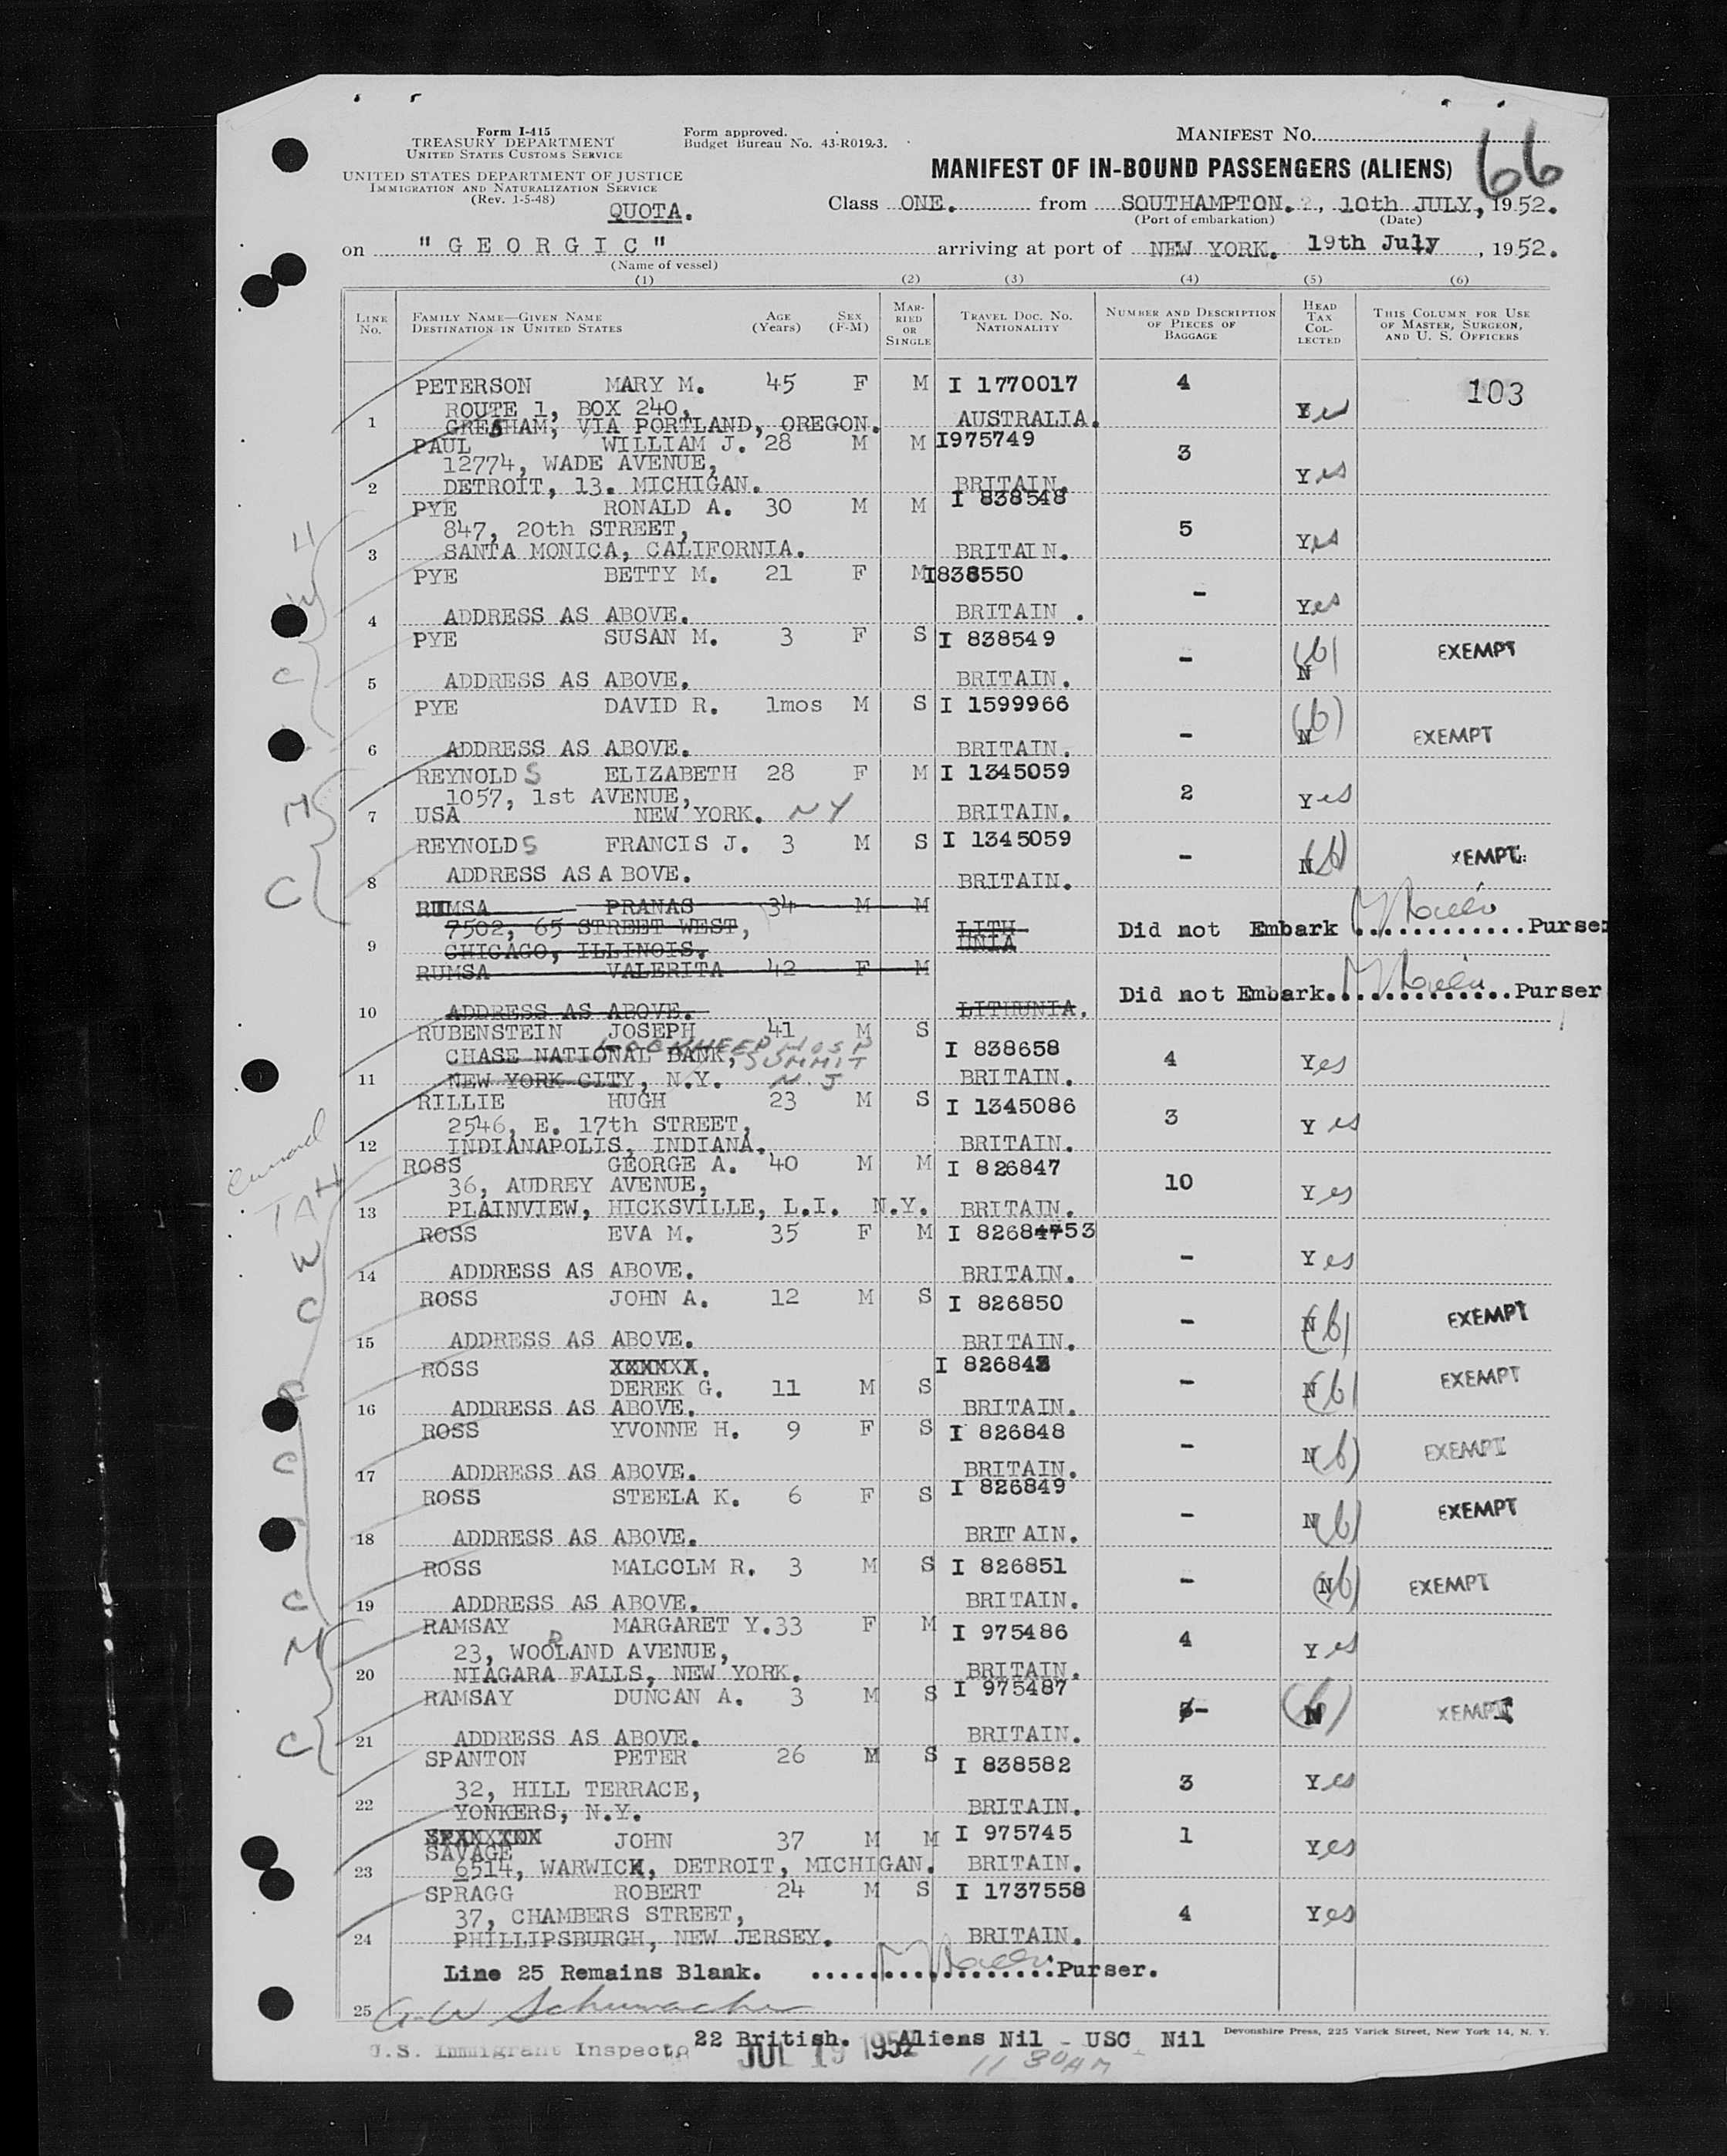 Form I-415
TREASURY DEPARTMENT
UNITED STATES CUSTOMS SERVICE
UNITED STATES DEPARTMENT OF JUSTICE
IMMIGRATION AND NATURALIZATION SERVICE
(Rev. 1-5-48)
QUOTA.
Form approved.
Budget Bureau No. 43-R019.3.
MANIFEST NO.
66
MANIFEST OF IN-BOUND PASSENGERS (ALIENS)
Class ONE. from SOUTHAMPTON., 10th JULY, 1952.
(Port of embarkation) (Date)
on "GEORGIC" arriving at port of NEW YORK. 19th July, 1952.
(Name of vessel)
(1) (2) (3) (4) (5) (6)
LINE NO. FAMILY NAME—GIVEN NAME DESTINATION IN UNITED STATES AGE (Years) SEX (F-M) MARRIED OR SINGLE TRAVEL DOC. NO. NATIONALITY NUMBER AND DESCRIPTION OF PIECES OF BAGGAGE HEAD TAX COLLECTED THIS COLUMN FOR USE OF MASTER, SURGEON, AND U. S. OFFICERS
PETERSON MARY M. 45 F M I 1770017 4 103
ROUTE 1, BOX 240, Yes
1 GRESHAM, VIA PORTLAND, OREGON. AUSTRALIA.
PAUL WILLIAM J. 28 M M I975749 3
12774, WADE AVENUE, Yes
2 DETROIT, 13. MICHIGAN. BRITAIN.
PYE RONALD A. 30 M M I 838548
847, 20th STREET, 5 Yes
3 SANTA MONICA, CALIFORNIA. BRITAIN.
PYE BETTY M. 21 F M I838550 -
4 ADDRESS AS ABOVE. BRITAIN . Yes
PYE SUSAN M. 3 F S I 838549 - (b) N EXEMPT
5 ADDRESS AS ABOVE. BRITAIN.
PYE DAVID R. 1mos M S I 1599966 - (b) N EXEMPT
6 ADDRESS AS ABOVE. BRITAIN.
REYNOLDS ELIZABETH 28 F M I 1345059
1057, 1st AVENUE, 2 Yes
7 USA NEW YORK. NY BRITAIN.
REYNOLDS FRANCIS J. 3 M S I 1345059 - N (b) XEMPT
8 ADDRESS AS A BOVE. BRITAIN.
RUMSA PRANAS 34 M M
7502, 65 STREET WEST, LITH Did not Embark ............Purser
9 CHICAGO, ILLINOIS. UNIA
RUMSA VALERITA 42 F M
Did not Embark..............Purser
10 ADDRESS AS ABOVE. LITHUNIA.
RUBENSTEIN JOSEPH 41 M S
CHASE NATIONAL BANK, SUMMIT I 838658 4 Yes
11 NEW YORK CITY, N.Y. N.J BRITAIN.
RILLIE HUGH 23 M S I 1345086
2546, E. 17th STREET, 3 Yes
12 INDIANAPOLIS, INDIANA. BRITAIN.
ROSS GEORGE A. 40 M M I 826847
36, AUDREY AVENUE, 10 Yes
13 PLAINVIEW, HICKSVILLE, L.I. N.Y. BRITAIN.
ROSS EVA M. 35 F M I 82684753 - Yes
14 ADDRESS AS ABOVE. BRITAIN.
ROSS JOHN A. 12 M S I 826850 - N (b) EXEMPT
15 ADDRESS AS ABOVE. BRITAIN.
ROSS XXXXXX. I 82684
DEREK G. 11 M S - N (b) EXEMPT
16 ADDRESS AS ABOVE. BRITAIN.
ROSS YVONNE H. 9 F S I 826848 - N (b) EXEMPT
17 ADDRESS AS ABOVE. BRITAIN.
ROSS STEELA K. 6 F S I 826849 - N (b) EXEMPT
18 ADDRESS AS ABOVE. BRIT AIN.
ROSS MALCOLM R. 3 M S I 826851 - N (b) EXEMPT
19 ADDRESS AS ABOVE. BRITAIN.
RAMSAY MARGARET Y. 33 F M I 975486
23, WOODLAND AVENUE, 4 Yes
20 NIAGARA FALLS, NEW YORK. BRITAIN.
RAMSAY DUNCAN A. 3 M S I 975487 - (b) N XEMPT
21 ADDRESS AS ABOVE. BRITAIN.
SPANTON PETER 26 M S I 838582
32, HILL TERRACE, 3 Yes
22 YONKERS, N.Y. BRITAIN.
JOHN 37 M M I 975745 1 Yes
SAVAGE
23 6514, WARWICK, DETROIT, MICHIGAN. BRITAIN.
SPRAGG ROBERT 24 M S I 1737558
37, CHAMBERS STREET, 4 Yes
24 PHILLIPSBURGH, NEW JERSEY. BRITAIN.
Line 25 Remains Blank. ...................Purser.
25 G.W Schumacher
22 British. Aliens Nil - USC - Nil
Devonshire Press, 225 Varick Street, New York 14, N. Y.
U.S. Immigrant Inspecto
JUL 19 1952
11 30AM